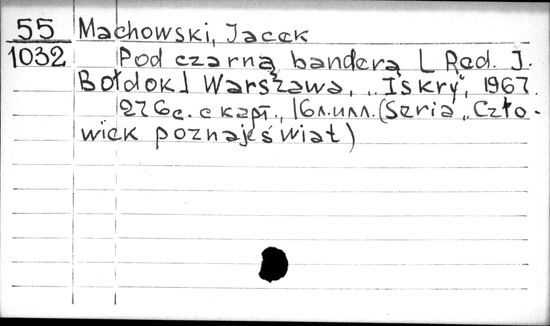 55 Machowski, Jacek
1032 Pod czarną banderą [Red. J.
Bołdok] Warszawa, „Iskry", 1967.
276с. с карт., 16л.илл. (Seria „Czło-
wiek poznaje świat)